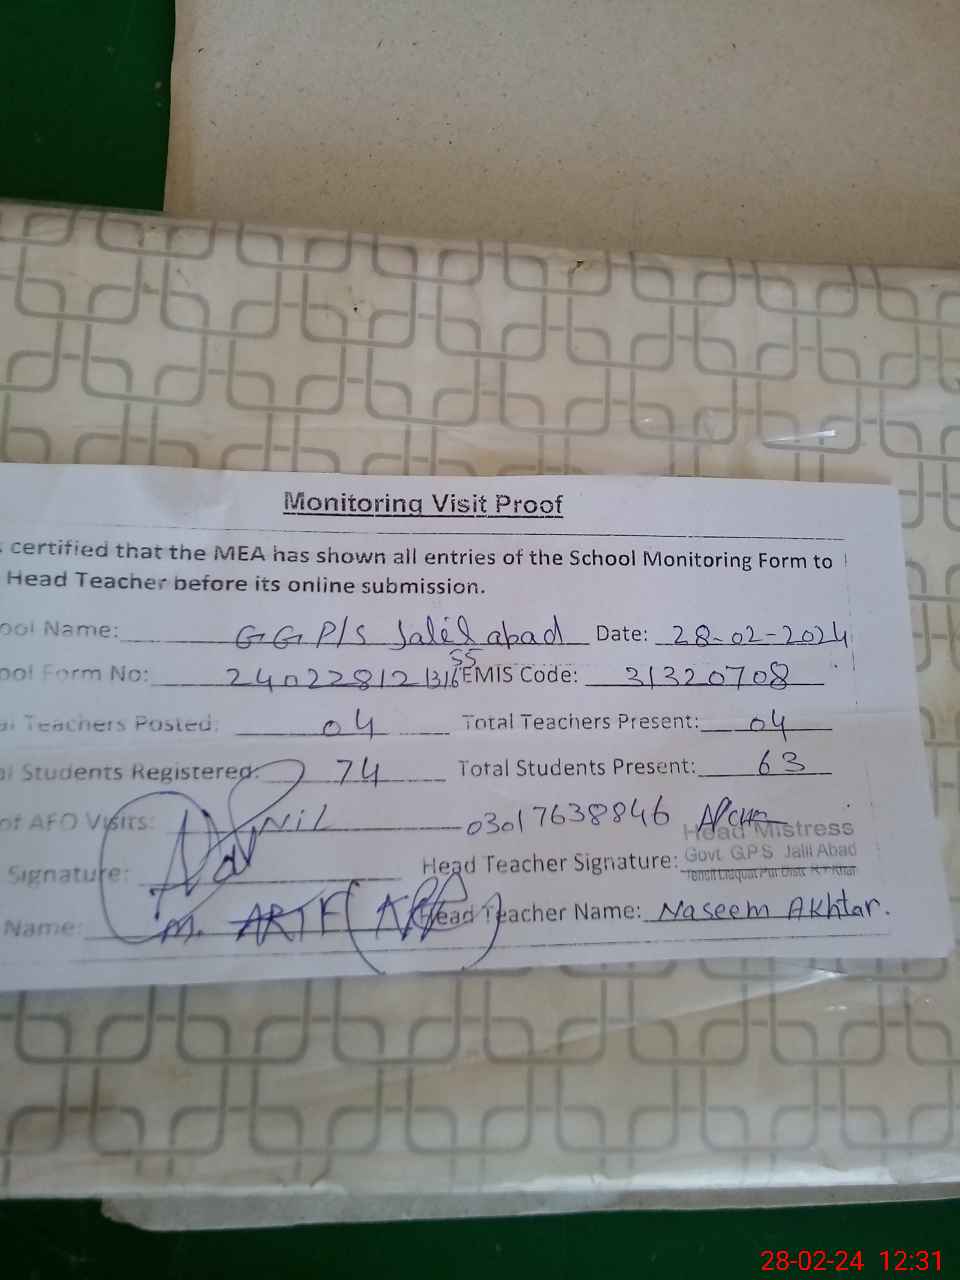 Monitoring Visit Proof
certified that the MEA has shown all entries of the School Monitoring Form to
Head Teacher before its online submission.
ool Name: G G P/S Jalil abad Date: 28-02-2024
ool Form No: 24022812131655 EMIS Code: 31320708
al Teachers Posted: 04 Total Teachers Present: 04
al Students Registered: 74 Total Students Present: 63
of AFO Visits: Nil 03017638846
Head Mistress
Signature: Head Teacher Signature: Govt. G.P.S Jalil Abad
Name: M. ARIF Head Teacher Name: Naseem Akhtar.
28-02-24 12:31